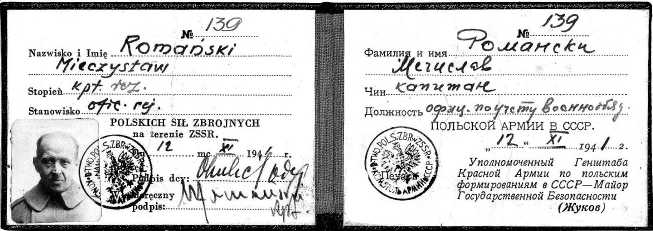 № 139
Nazwisko i Imię Romański
Mieczysław
Stopień kpt rez.
Stanowisko ofic. rej.
POLSKICH SIŁ ZBROJNYCH
na terenie ZSSR.
12 XI 194
podpis dcy:
podpis:
№ 139
Фамилия и имя Романски
Мечислав
Чин капитан
Должность офиц. по учету военнообяз.
ПОЛЬСКОЙ АРМИИ В СССР.
„12" XI 1941 г.
Уполномоченный Генштаба
Красной Армии по польским
формированиям в СССР—Майор
Государственной Безопасности
(Жуков)